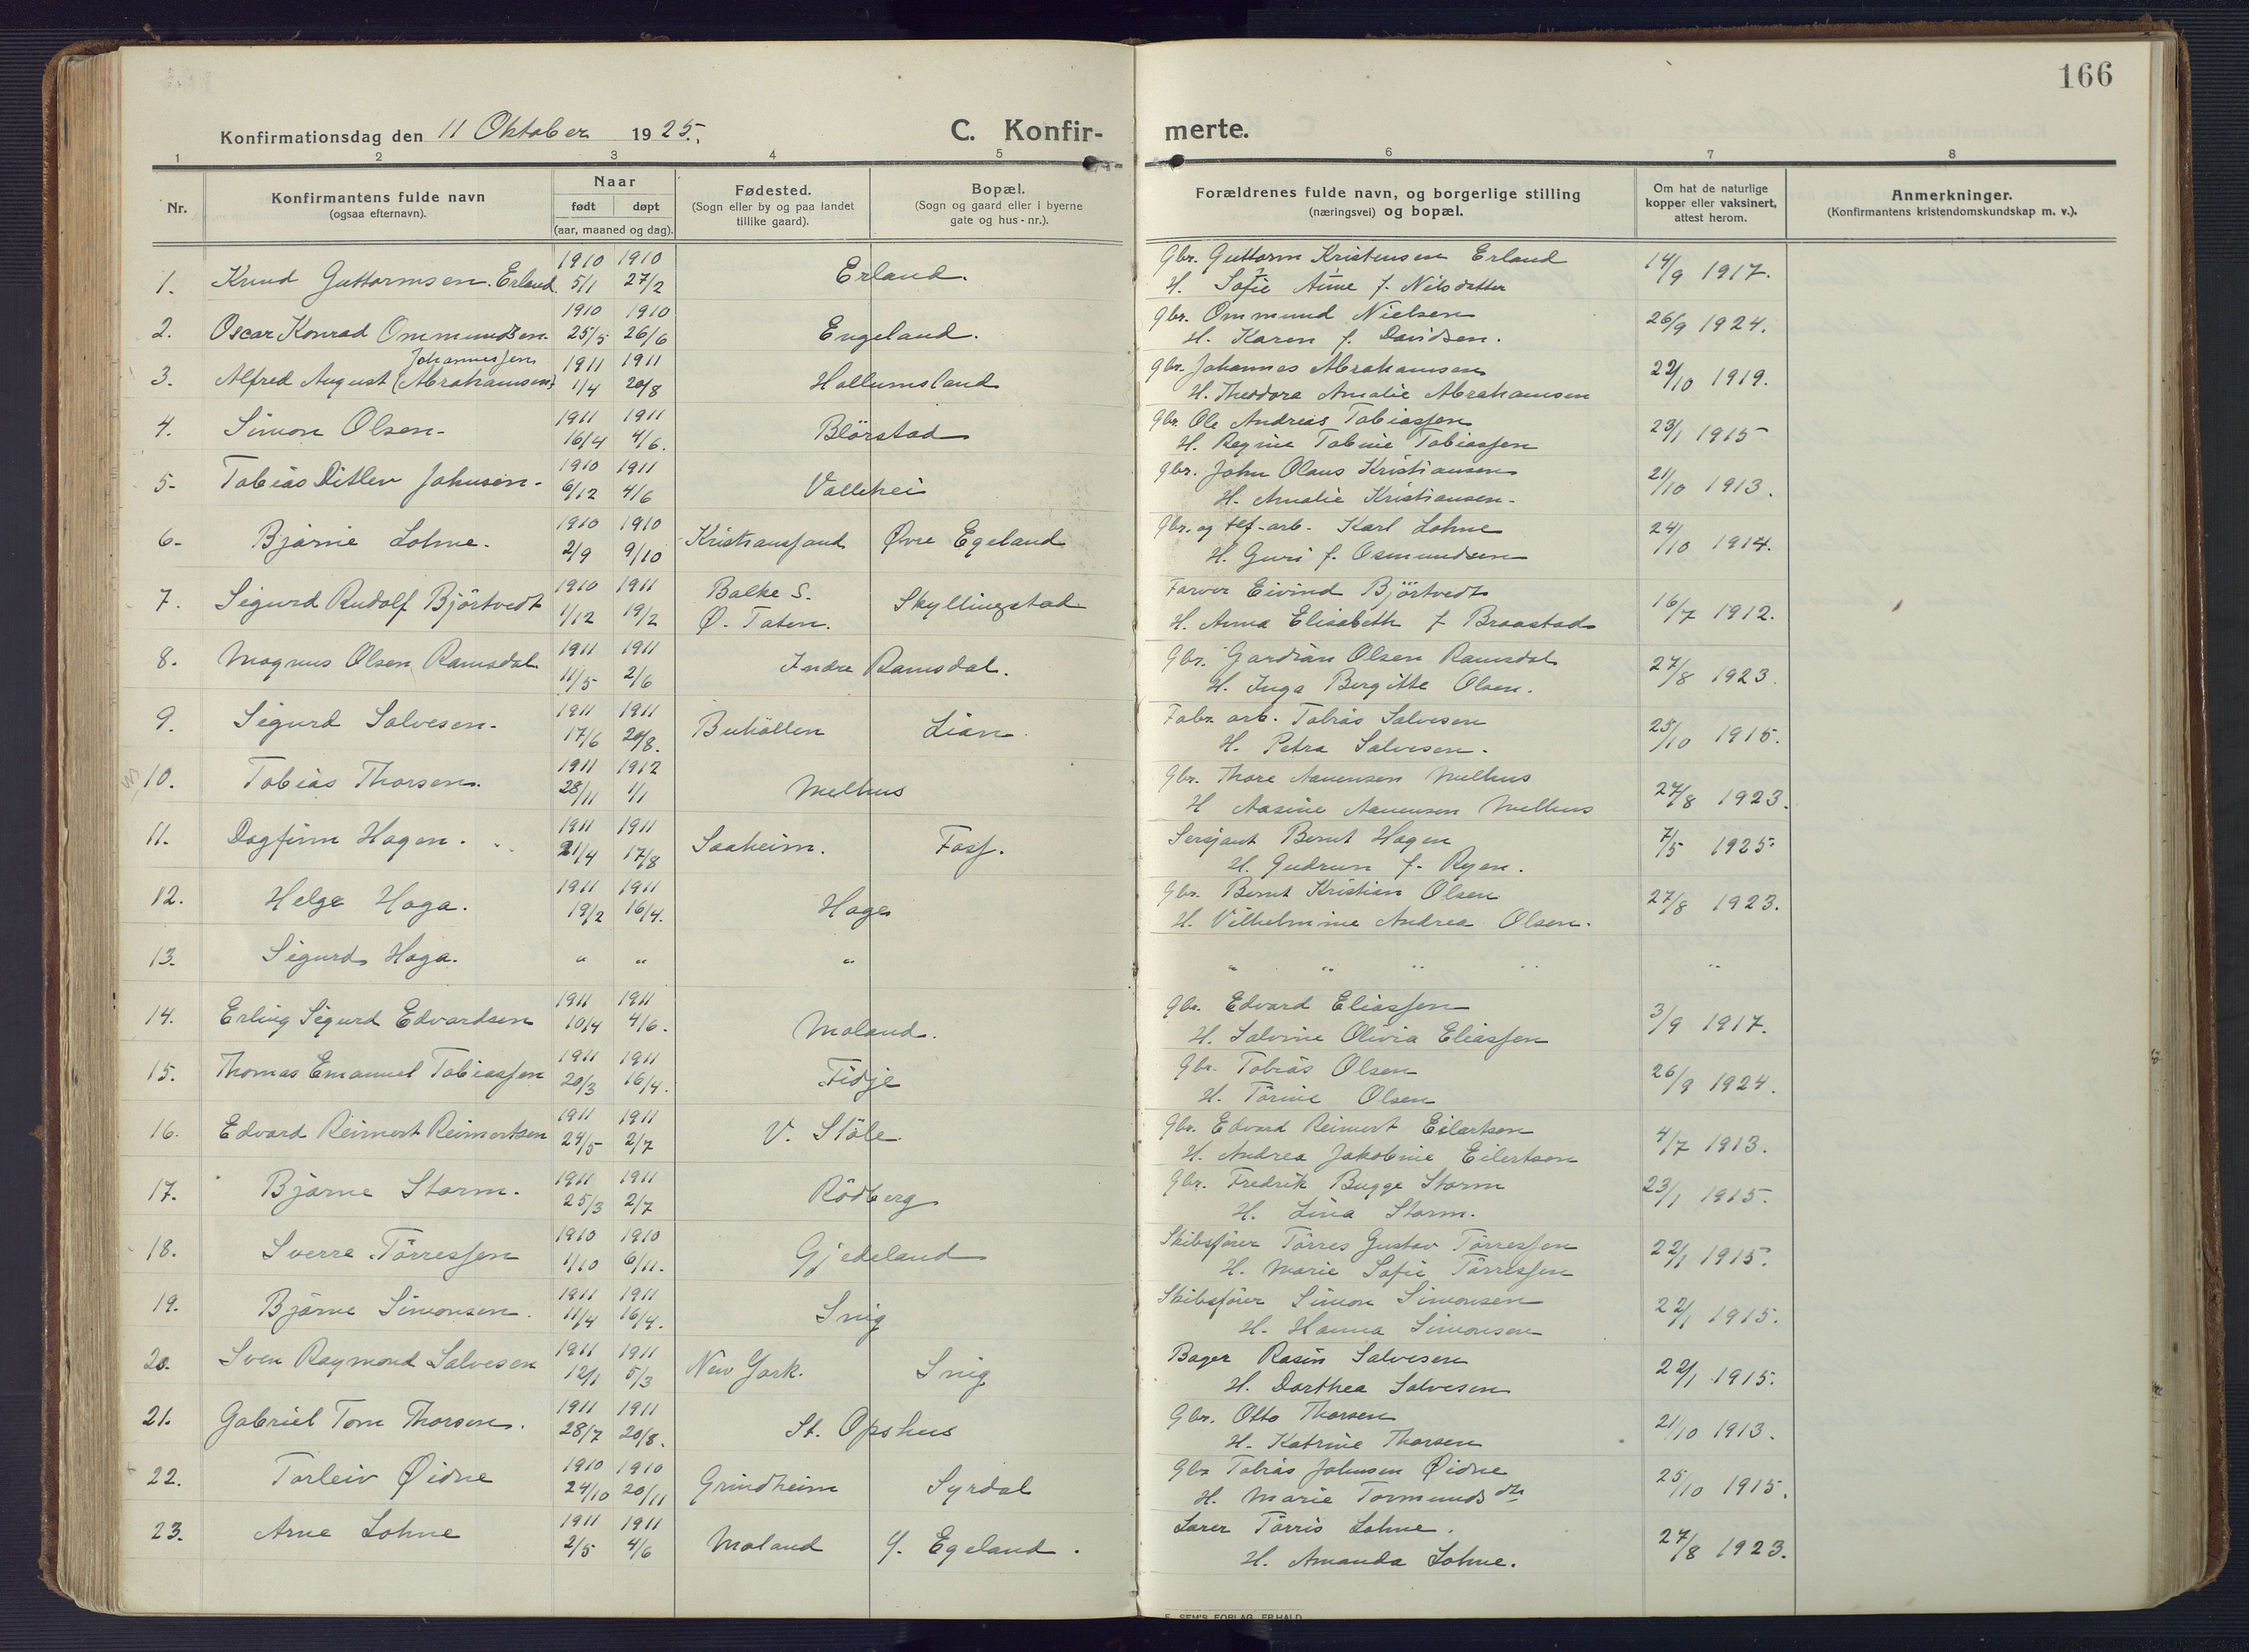 166
Konfirmationsdag den 11 Oktober 1925.
C. Konfir-
merte.
1 2 3 4 5 6 7 8
Nr.
Konfirmantens fulde navn
(ogsaa efternavn).
Naar
født døpt
(aar, maaned og dag).
Fødested.
(Sogn eller by og paa landet
tillike gaard).
Bopæl.
(Sogn og gaard eller i byerne
gate og hus-nr.).
Forældrenes fulde navn, og borgerlige stilling
(næringsvei) og bopæl.
Om hat de naturlige
kopper eller vaksinert,
attest herom.
Anmerkninger.
(Konfirmantens kristendomskundskap m. v.).
1910 1910 Gbr. Guttorm Kristensen Erland
1. Knud Guttormsen Erland. 5/1 27/2 Erland. 14/9 1917.
H. Sofie Aune f. Nilsdatter
1910 1910 gbr. Ommund Nielsen
2. Oscar Konrad Ommundsen. 25/5 26/6 Engeland. 26/9 1924.
H. Karen f. Davidsen.
Johannessen 1911 1911 gbr. Johannes Abrahamsen
3. Alfred August (Abrahamsen) 1/4 20/8 Hallumsland 22/10 1919.
H. Theodora Amalie Abrahamsen
1911 1911 gbr. Ole Andreas Tobiassen
4. Simon Olsen. 16/4 4/6. Blörstad 23/1 1915
H. Regine Tobine Tobiassen
1910 1911 gbr. John Olaus Kristiansen
5. Tobias Ditlev Johnsen. 6/12 4/6 Vallehei 21/10 1913.
H. Amalie Kristiansen.
1910 1910 Gbr. og tlf-arb. Karl Lohne
6. Bjarne Lohne. 2/9 9/10 Kristianssand Øvre Egeland 24/10 1914.
H. Guri f. Osmundsen
1910 1911 Balke S. Farver Eivind Björtvedt
7. Sigurd Rudolf Björtvedt 1/12 19/2 Ø. Toten. Skyllingstad 16/7 1912.
H. Anna Elisabeth f Braastad
1911 1911 Gbr. Gardian Olsen Ramsdal
8. Magnus Olsen Ramsdal 11/5 2/6 Indre Ramsdal. 27/8 1923.
H. Inga Birgitte Olsen.
1911 1911 Fabr. arb. Tobias Salvesen
9. Sigurd Salvesen. 17/6 20/8. Buhöllen Lian. 25/10 1915.
H. Petra Salvesen.
1911 1912 Gbr. Thore Aanensen Melhus
10. Tobias Thorsen. 28/11 1/1 Melhus 27/8 1923.
H Aasine Aanensen Melhus
1911 1911 Sersjant Bernt Hagen
11. Dagfinn Hagen. 21/4 17/8 Saaheim. Foss. 7/5 1925.
H. Gudrun f. Ryen.
1911 1911 Gbr. Bernt Kristian Olsen
12. Helge Haga. 19/2 16/4. Haga 27/8 1923.
H. Vilhelmine Andrea Olsen.
13. Sigurd Haga. " " " " " " " "
1911 1911 gbr. Edvard Eliassen
14. Erling Sigurd Edvardsen 10/4 4/6. Moland. 3/9 1917.
H. Salvine Olivia Eliassen
1911 1911 Gbr. Tobias Olsen
15. Thomas Emanuel Tobiassen 20/3 16/4. Fidje 26/9 1924.
H. Törine Olsen
1911 1911 Gbr. Edvard Reimert Eilertsen
16. Edvard Reimert Reimertsen 24/5 2/7 V. Stöle. 4/7 1913.
H. Andrea Jakobine Eilertsen
1911 1911 Gbr. Fredrik Bugge Storm
17. Bjarne Storm. 25/3 2/7 Rödberg 23/1 1915.
H. Lina Storm.
1910 1910 Skibsfører Törres Gustav Törressen
18. Sverre Törressen 1/10 6/11. Gjedeland 22/1 1915.
H. Marie Sofie Törressen
1911 1911 Skibsfører Simon Simonsen
19. Bjarne Simonsen. 11/4 16/4. Snig 22/1 1915.
H. Hanna Simonsen
1911 1911 Bager Rasin Salvesen
20. Sven Raymond Salvesen 12/1 5/3 New York. Snig 22/1 1915.
H. Dorthea Salvesen
1911 1911 Gbr. Otto Thorsen
21. Gabriel Tom Thorsen. 28/7 20/8. St. Opshus 21/10 1913.
H. Katrine Thorsen
1910 1910 Gbr Tobias Johnsen Øidne
22. Torleiv Øidne 24/10 20/11 Grindheim Syrdal 25/10 1915.
H. Marie Tormundsdtr
1911 1911 Lærer Törris Lohne.
23. Arne Lohne 2/5 4/6 Moland Y. Egeland. 27/8 1923.
H. Amanda Lohne.